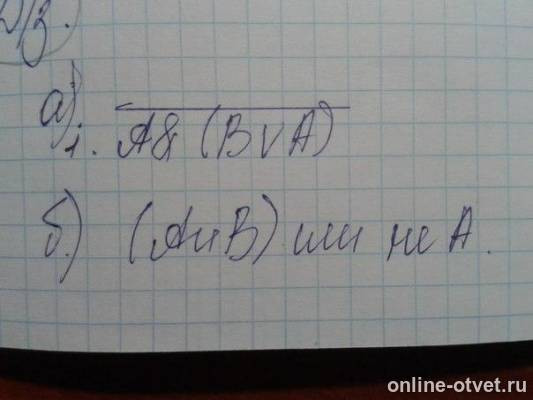 Д/З.
а)
1. A&(B∨A)
б) (A и B) или не A.
online-otvet.ru